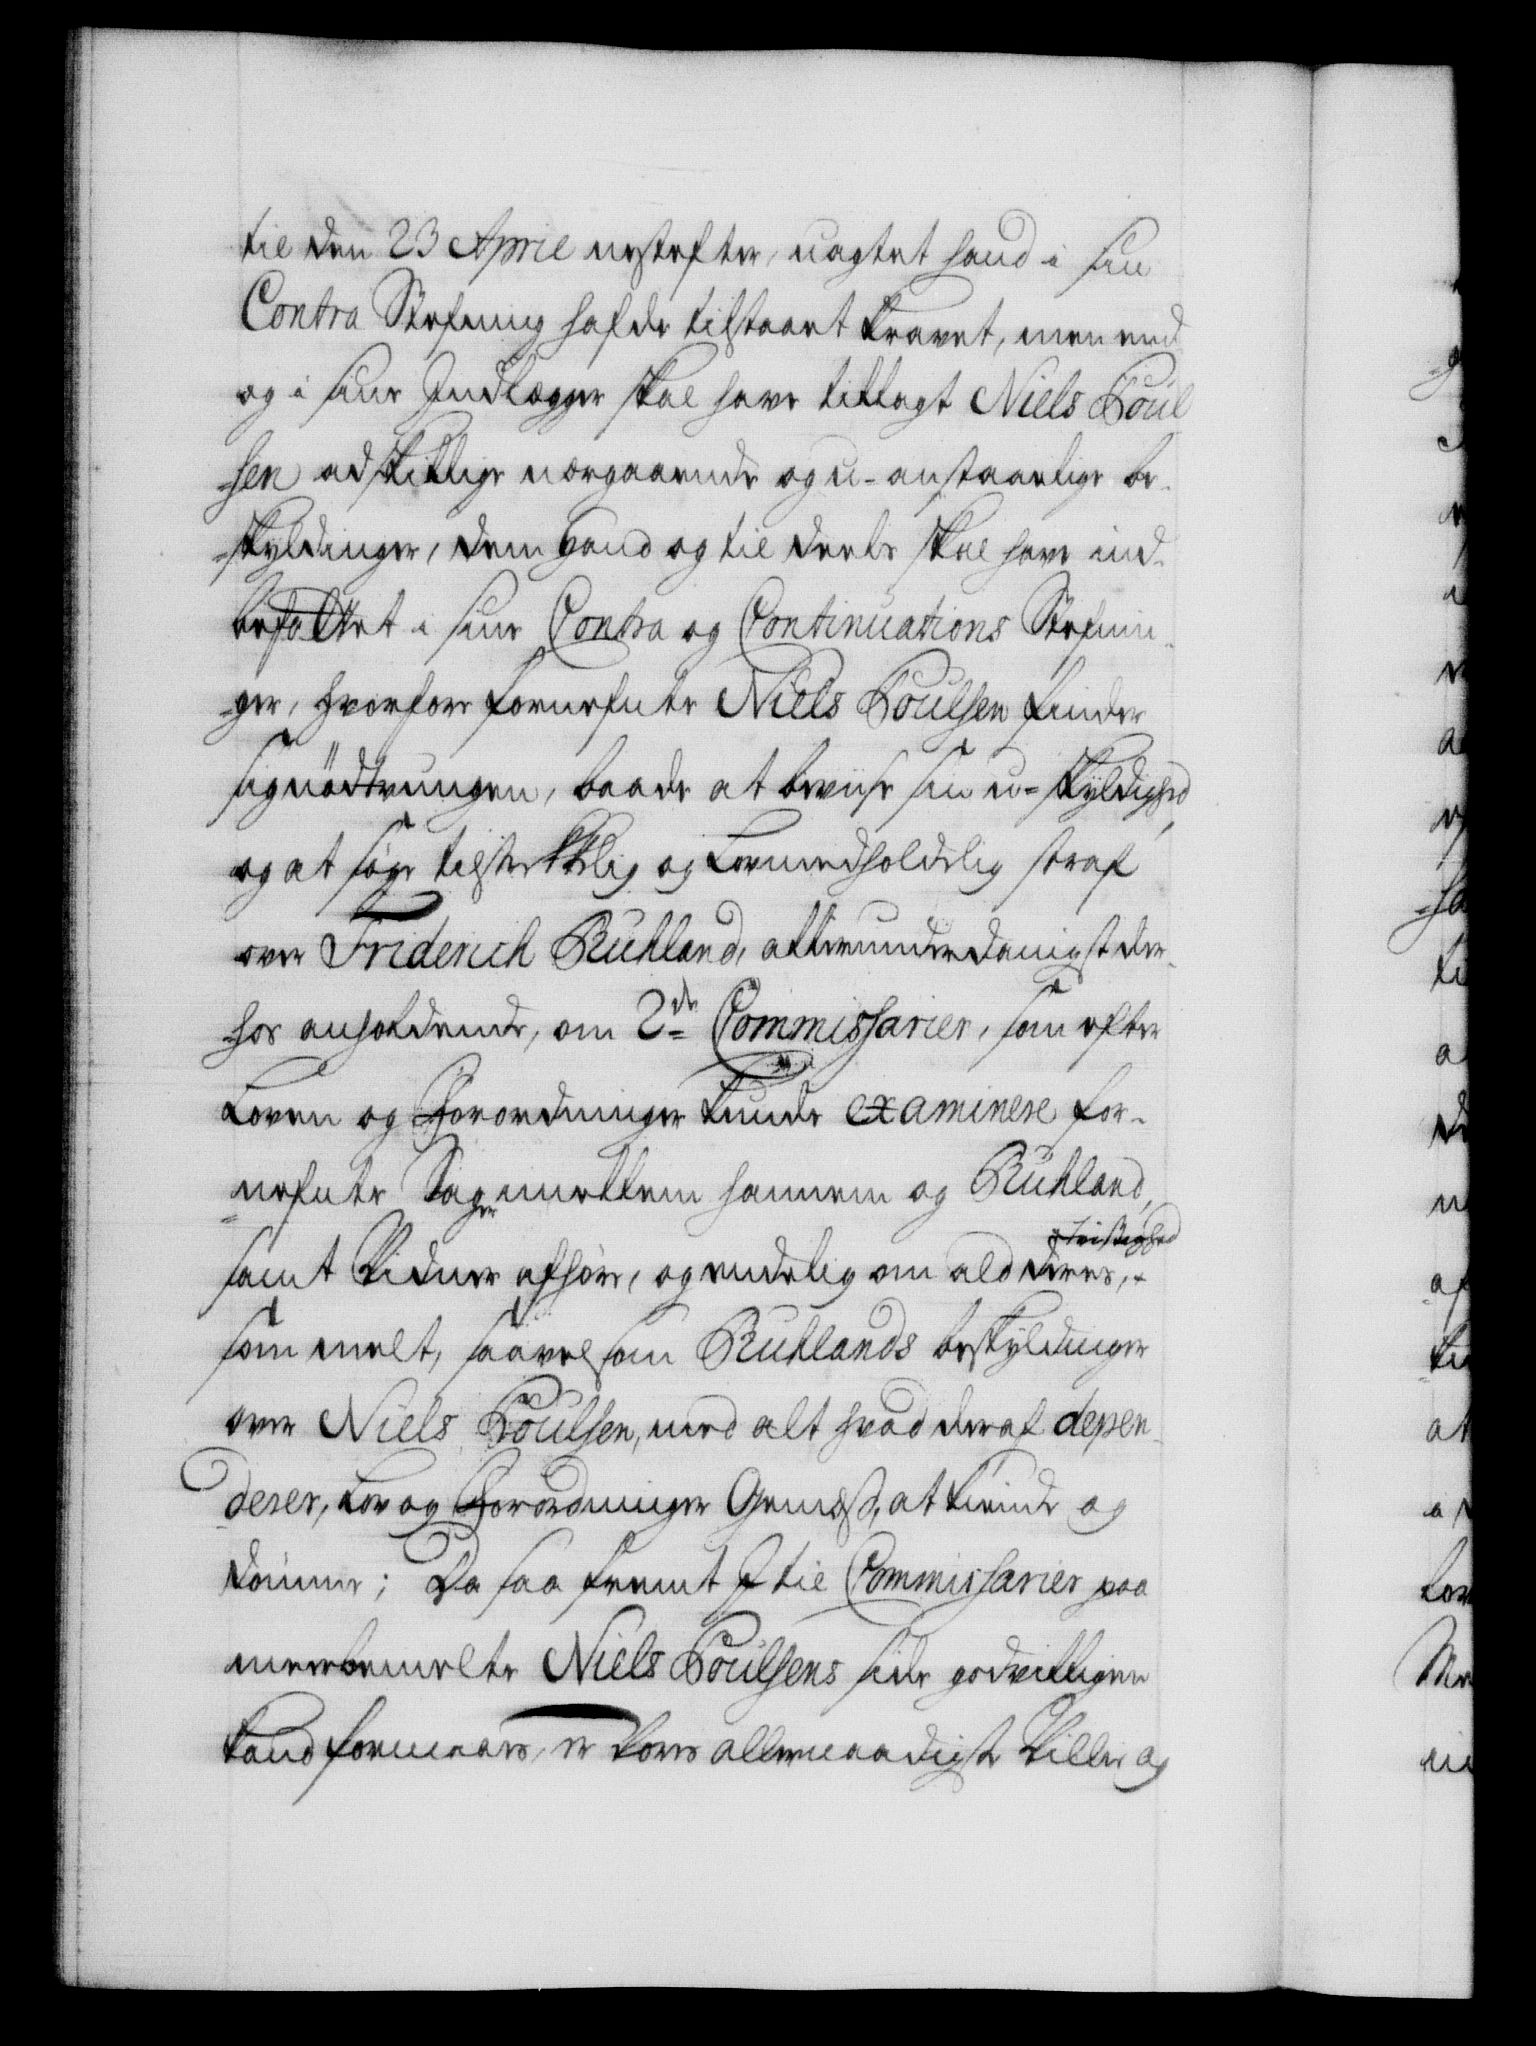 til den 23 April nestefter, uagtet hand i sin
Contra Stefning hafde tilstaaet kravet, men end
og i sine Indlægger skal have tillagt Niels Poul
-sen adskillige nærgaaende og u-anstændige be-
-skyldinger, dem hand og til deels skal have ind-
befattet i sine Contra og Continuations Stefnin-
-ger, hvorfore fornefnte Niels Poulsen finder
sig nödtvungen, baade at beviise sin u-skyldighed
og at söge tilstrekkelig og Lovmedholdelig straf
over Friderich Ruhland, allerunderdanigst der-
-hos anholdende, om 2de Commissarier, som efter
Loven og Forordninger kunde examinere for-
-nefnte Sager imellem hannem og Ruhland,
samt Vidner afhöre, og endelig om ald deres, tvistighed
som melt, saavel som Ruhlands beskyldinger
over Niels Poulsen, med alt hvad deraf depen-
derer, Lov og Forordninger Gemæs, at kiende og
dömme; Da saa fremt I til Commissarier paa
meerbemelte Niels Poulsens side godvilligen
tand formaaes, er Vores allernaadigste Villie og